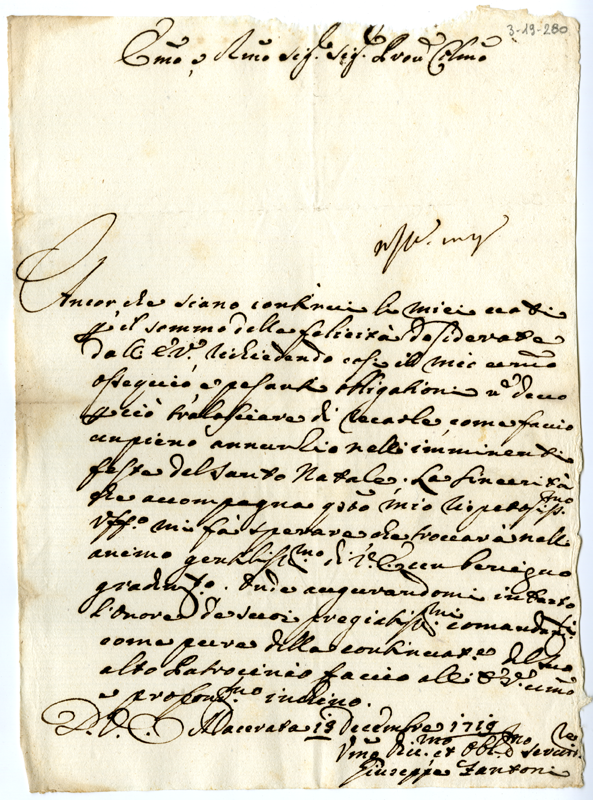 3-19-280
Emo, e Rmo Sig.r Sig.r Pron Colmo
Ancor che siano continui li miei voti
p il sommo delle felicità desiderate
dall'E.V., richiedendo così il mio
ossequio, e pesanti obligationi n devo
p ciò tralasciare di recarle, come faccio
un pieno annuntio nelle imminenti
feste del Santo Natale. La sincerità
che accompagna qsto mio rispetosiss.mo
Uff.o mi fà sperare che troverà nell
animo gentiliss.mo di V.E. un benigno
gradim.to. Onde augurandomi in tanto
l'onore de suoi pregiatiss.mi comandi
come pure della continuat.e del suo
alto Patrocinio faccio all'E.V. umo
e profond.mo inchino.
D.V.E. Macerata 13 Decembre 1719
Umo Div.mo et Obl.mo Servit.re
Giuseppe Fantoni